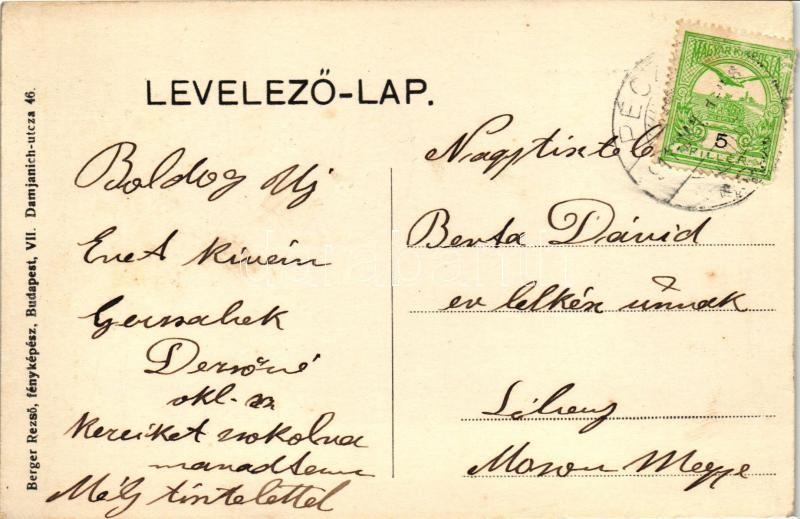 LEVELEZŐ-LAP.
Berger Rezső, fényképész, Budapest, VII. Damjanich-utcza 46.
MAGYAR KIR. POSTA
5
FILLÉR
PÉC
Boldog Uj
Evet kivein
Dezsőné
okl.
Kezeiket
Mély tisztelettel
Nagytisztele
Berta Dávid
ev lelkész úrnak
Lébeny
Moson Megye